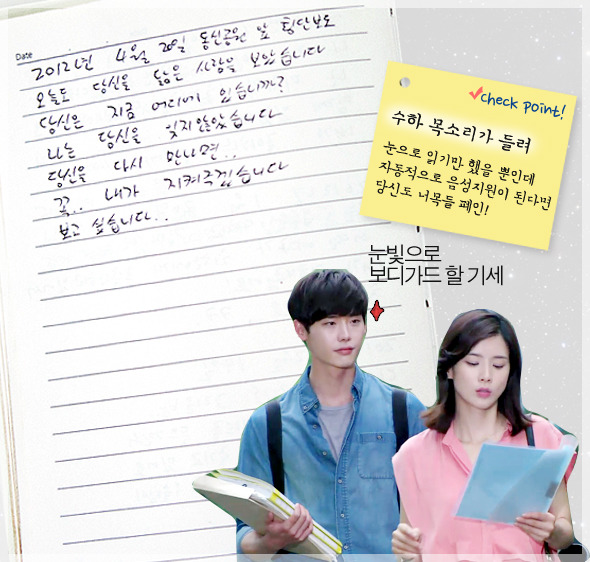 Date
2012년 4월 20일 동신공원 앞 횡단보도
오늘도 당신을 닮은 사람을 보았습니다
당신은 지금 어디에 있습니까?
나는 당신을 잊지않았습니다
당신을 다시 만나면..
꼭.. 내가 지켜주겠습니다
보고 싶습니다..
check point!
수하 목소리가 들려
눈으로 읽기만 했을 뿐인데
자동적으로 음성지원이 된다면
당신도 너목들 폐인!
눈빛으로
보디가드 할 기세